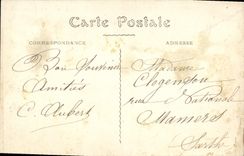 Carte Postale
CORRESPONDANCE
ADRESSE
Bon Souvenir
Amitiés
C. Aubert
Madame
Clogenson
rue Nationale
Mamers
Sarthe